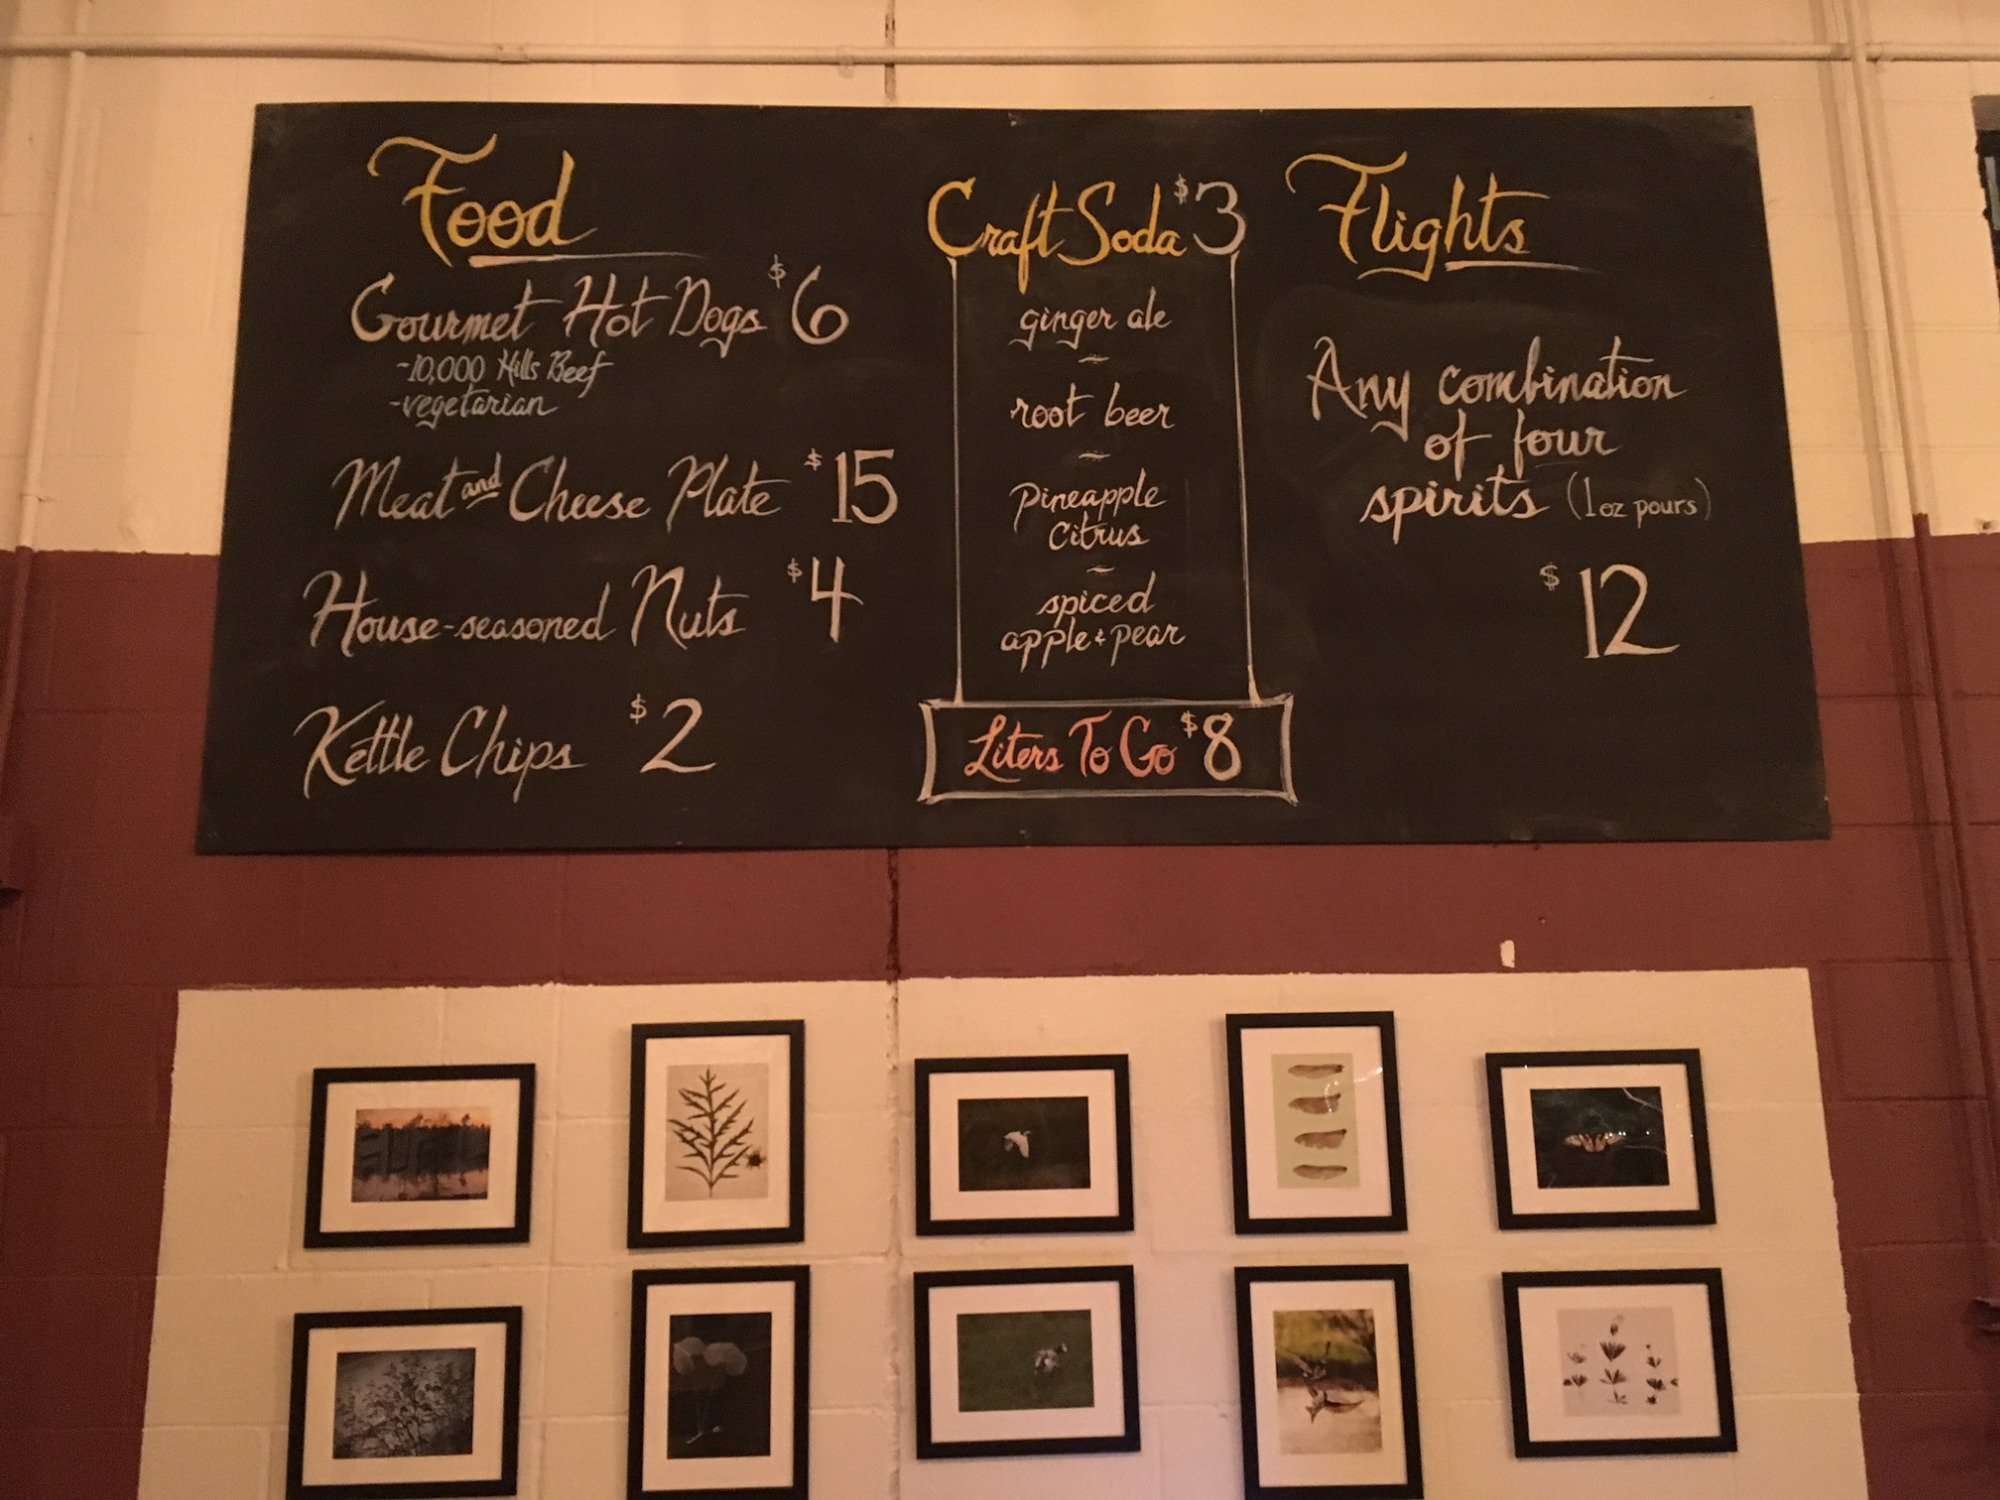 Food
Gourmet Hot Dogs $6
-10,000 Hills Beef
-vegetarian
Meat and Cheese Plate $15
House-seasoned Nuts $4
Kettle Chips $2
Craft Soda $3
ginger ale
~
root beer
~
Pineapple
Citrus
~
spiced
apple & pear
Liters To Go $8
Flights
Any combination
of four
spirits (1 oz pours)
$12